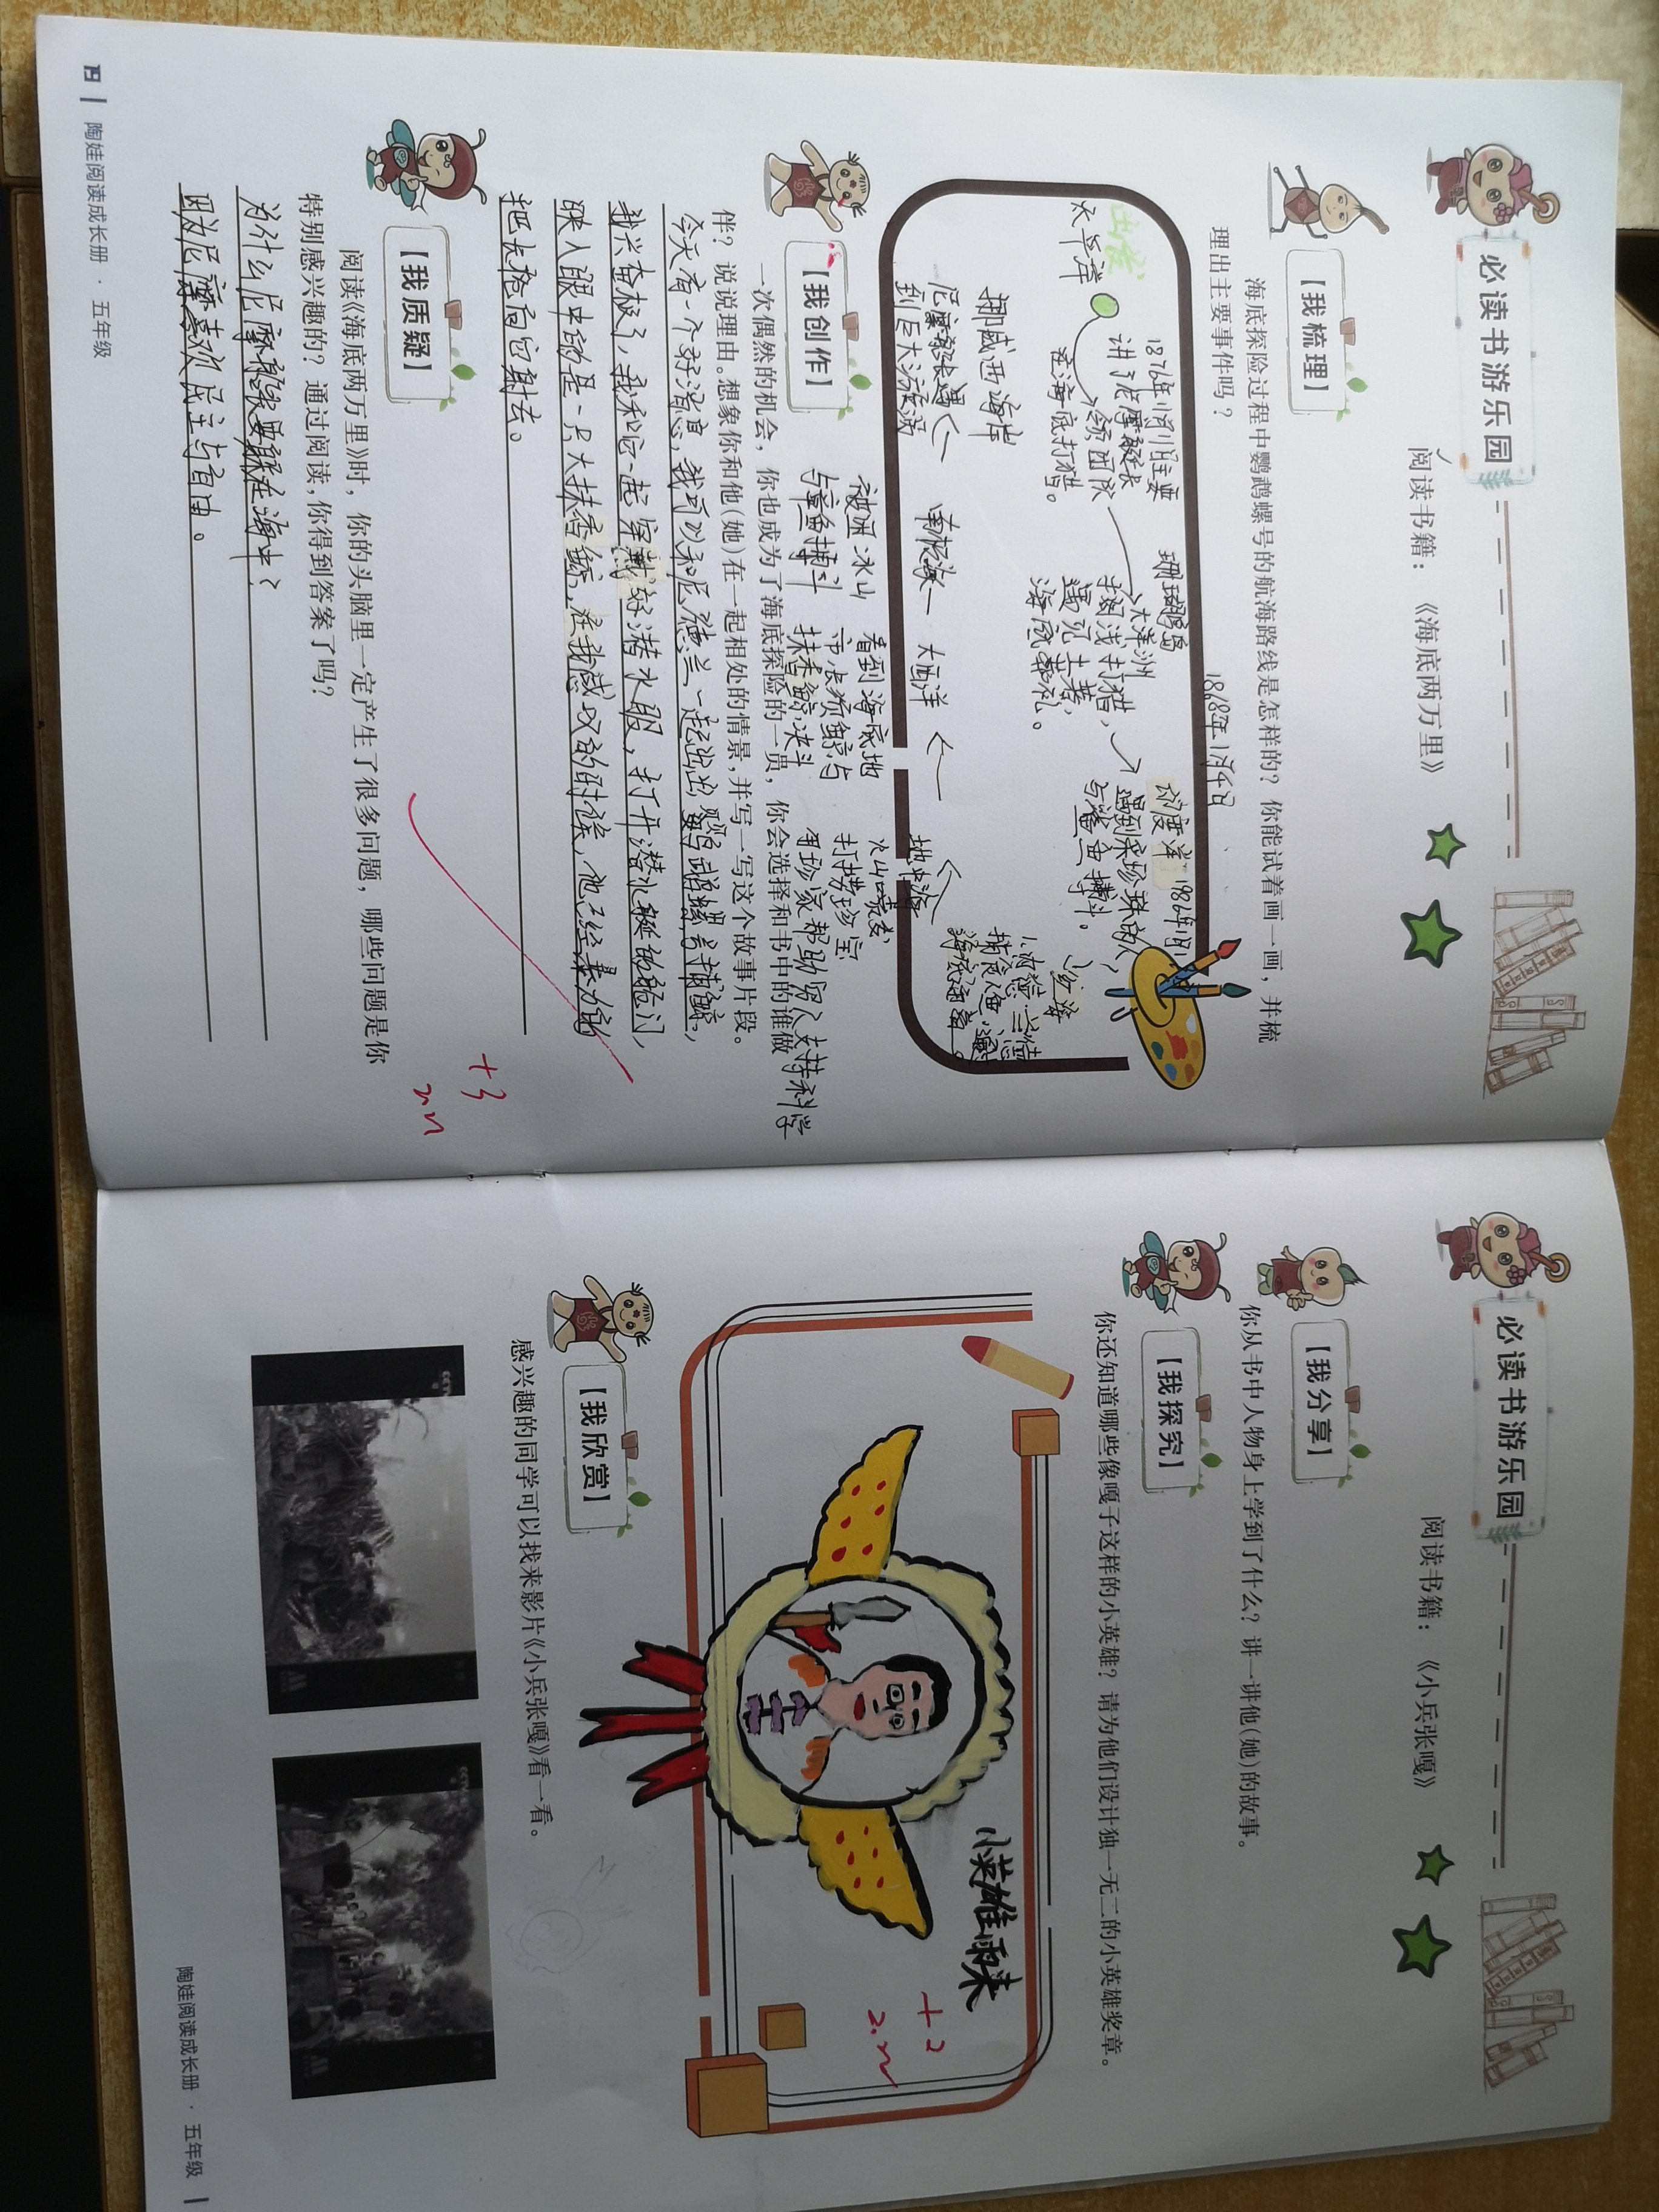 必读书游乐园
阅读书籍：《海底两万里》
【我梳理】
海底探险过程中鹦鹉螺号的航海路线是怎样的？你能试着画一画，并梳
理出主要事件吗？
1868年1月
出发
太平洋
讲了尼摩艇长
领团队
去海底打猎。
珊瑚
大洋洲
搁浅打猎，
遇见土著，
海底葬礼。
印度洋
遇到采珍珠的人，
与鲨鱼搏斗。
红海
地中海
火山喷发
打捞珍宝
用珍家帮助穷人支持科学
大西洋
看到海底地
抹香鲸决斗
南极
被困冰山
与章鱼搏斗
挪威西海岸
到巨大漩涡
【我创作】
一次偶然的机会，你也成为了海底探险的一员，你会选择和书中的谁做
伴？说说理由。想象你和他(她)在一起相处的情景，并写一写这个故事片段。
今天有一个好消息，我可以和尼德兰一起游出鹦鹉螺号捕鲸，
我兴奋极了，我和它一起穿好潜水服，打开潜水艇的舱门，
映入眼中的是一只大抹香鲸，在我感叹的时候，他已经暴力的
把长枪向它射去。
【我质疑】
阅读《海底两万里》时，你的头脑里一定产生了很多问题，哪些问题是你
特别感兴趣的？通过阅读，你得到答案了吗？
为什么尼摩艇长要躲在海中？
因为尼摩喜欢民主与自由。
+3
陶娃阅读成长册 · 五年级
必读书游乐园
阅读书籍：《小兵张嘎》
【我分享】
你从书中人物身上学到了什么？讲一讲他(她)的故事。
【我探究】
你还知道哪些像嘎子这样的小英雄？请为他们设计独一无二的小英雄奖章。
小英雄雨来
+2
【我欣赏】
感兴趣的同学可以找来影片《小兵张嘎》看一看。
陶娃阅读成长册 · 五年级